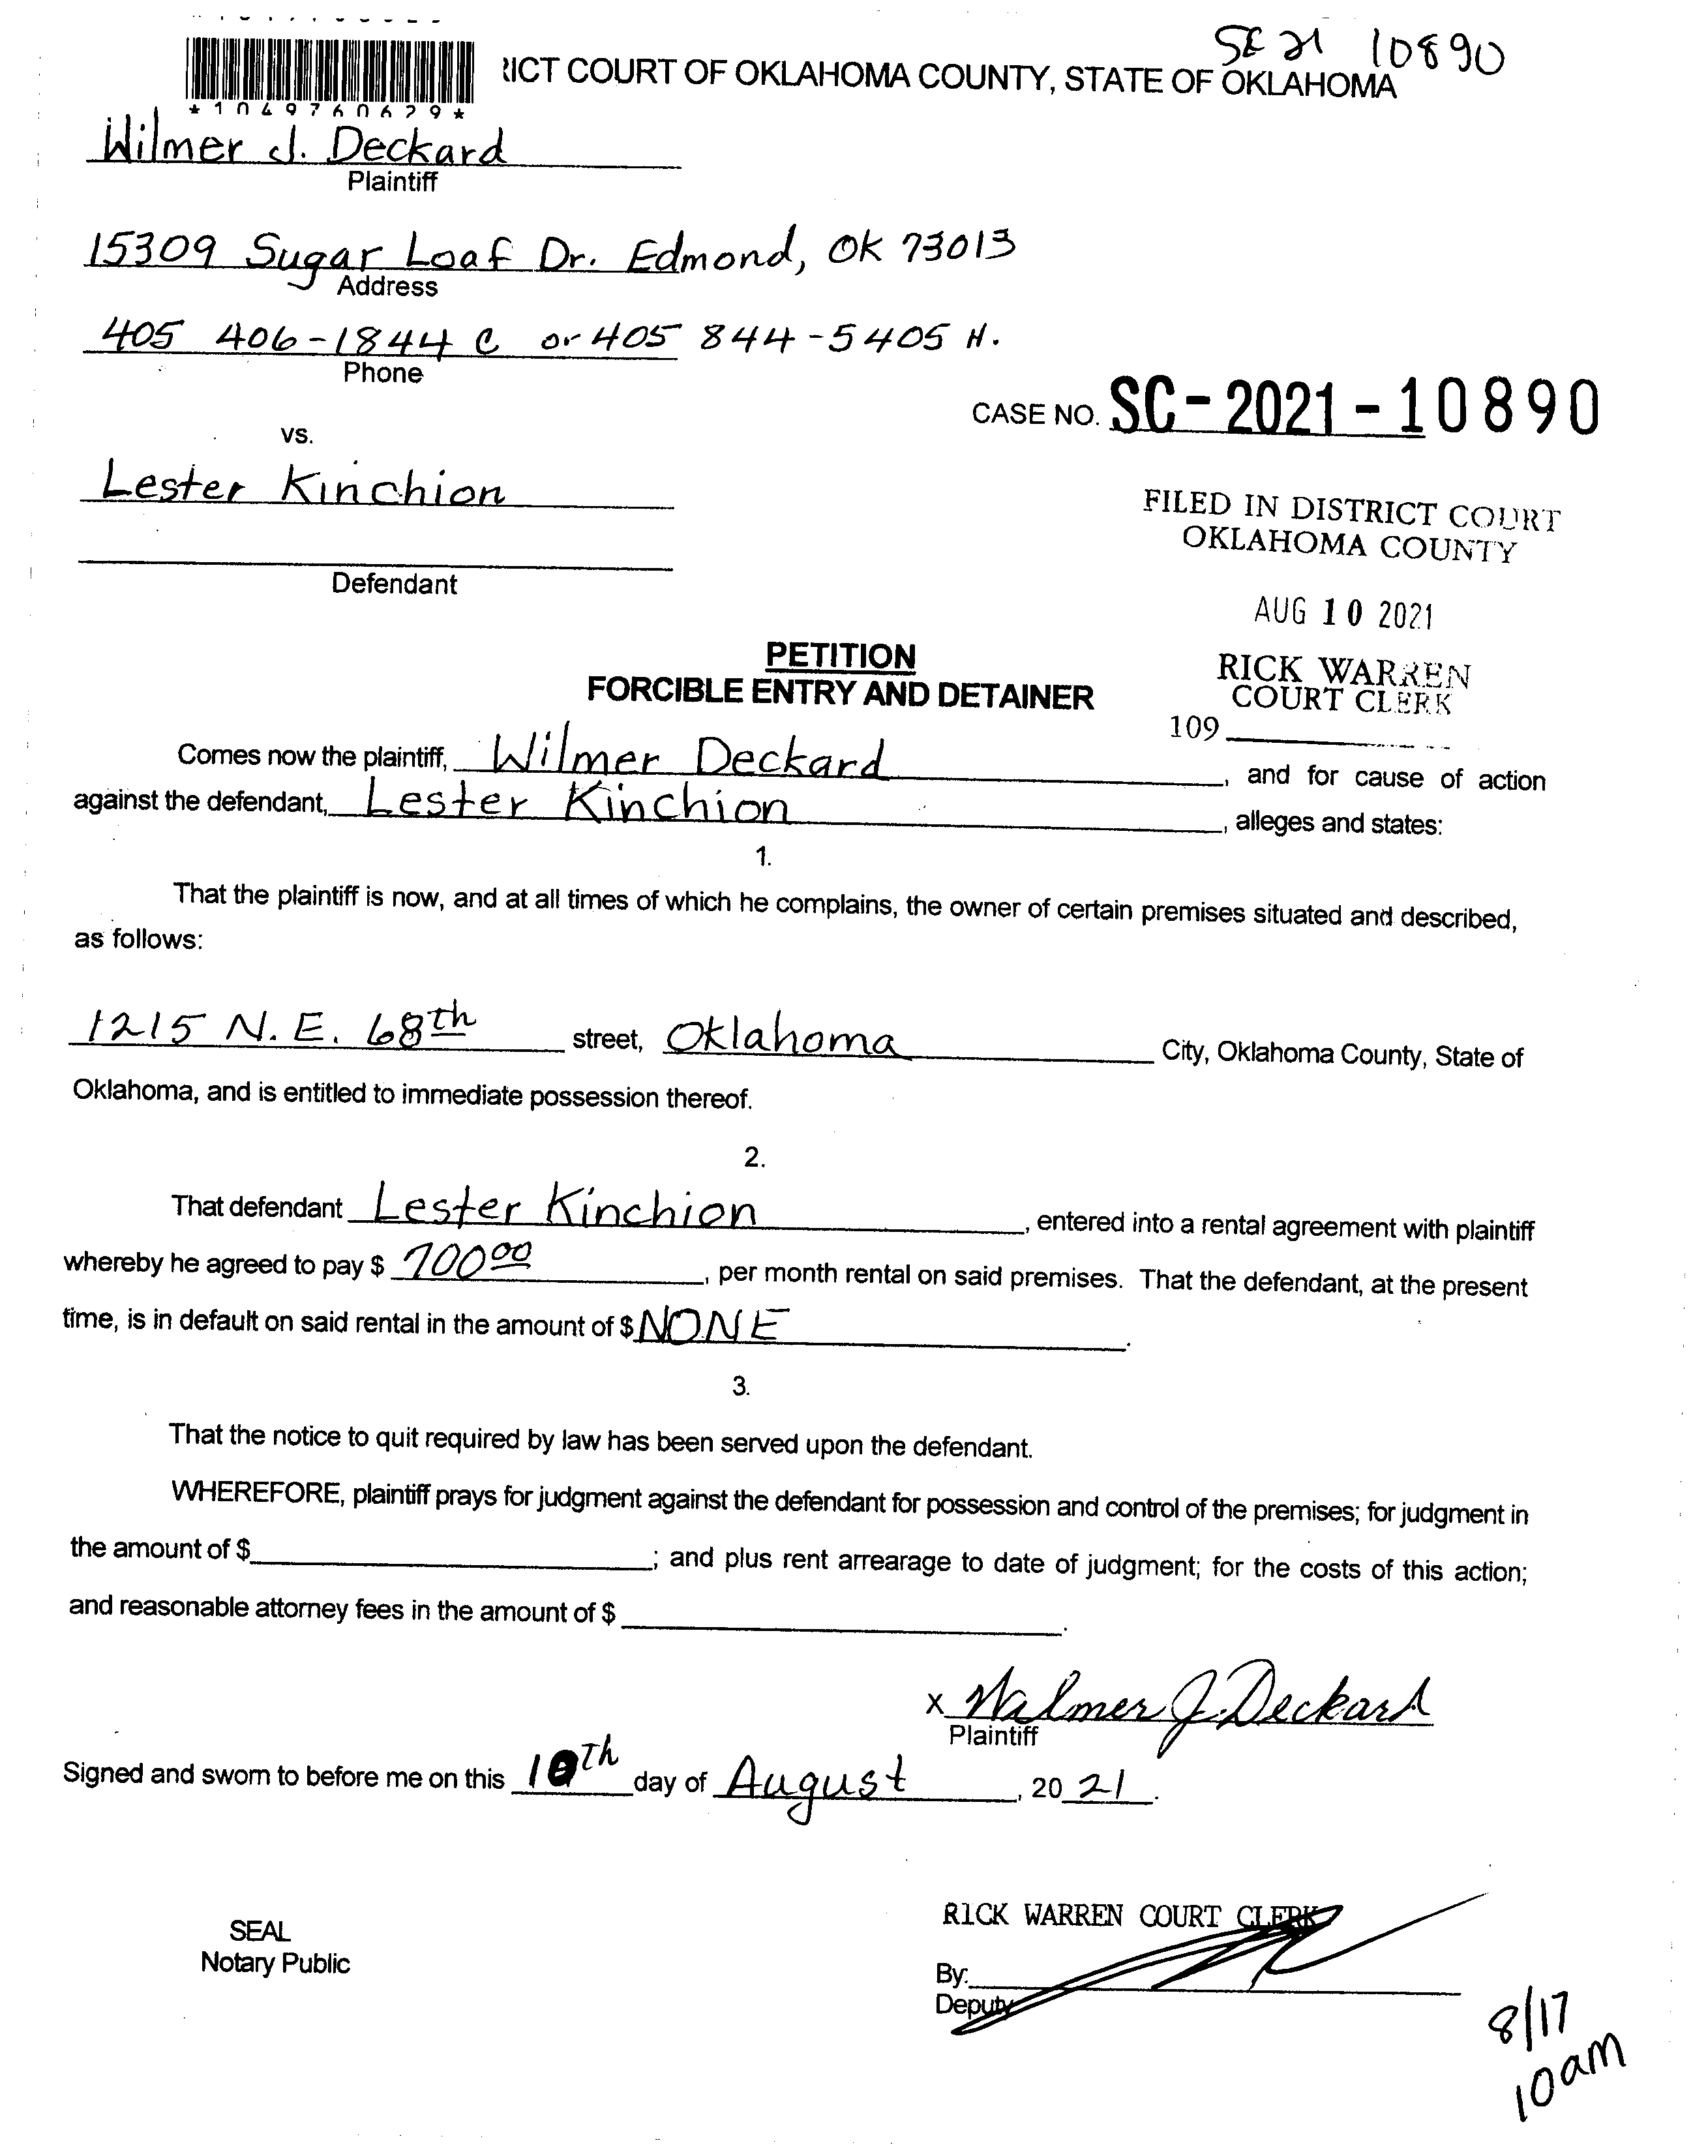 SC 21 10890
RICT COURT OF OKLAHOMA COUNTY, STATE OF OKLAHOMA
*1049760629*
Wilmer J. Deckard
Plaintiff
15309 Sugar Loaf Dr. Edmond, OK 73013
Address
405 406-1844 C or 405 844-5405 H.
Phone
CASE NO. SC-2021-10890
vs.
Lester Kinchion
FILED IN DISTRICT COURT
OKLAHOMA COUNTY
Defendant
AUG 10 2021
PETITION
FORCIBLE ENTRY AND DETAINER
RICK WARREN
COURT CLERK
109
Comes now the plaintiff, Wilmer Deckard, and for cause of action
against the defendant, Lester Kinchion, alleges and states:
1.
That the plaintiff is now, and at all times of which he complains, the owner of certain premises situated and described,
as follows:
1215 N.E. 68th street, Oklahoma City, Oklahoma County, State of
Oklahoma, and is entitled to immediate possession thereof.
2.
That defendant Lester Kinchion, entered into a rental agreement with plaintiff
whereby he agreed to pay $ 700 00, per month rental on said premises. That the defendant, at the present
time, is in default on said rental in the amount of $ NONE.
3.
That the notice to quit required by law has been served upon the defendant.
WHEREFORE, plaintiff prays for judgment against the defendant for possession and control of the premises; for judgment in
the amount of $ ; and plus rent arrearage to date of judgment; for the costs of this action;
and reasonable attorney fees in the amount of $ .
X Wilmer J. Deckard
Plaintiff
Signed and sworn to before me on this 10th day of August, 20 21.
RICK WARREN COURT CLERK
SEAL
Notary Public
By:
Deputy
8/17
10am